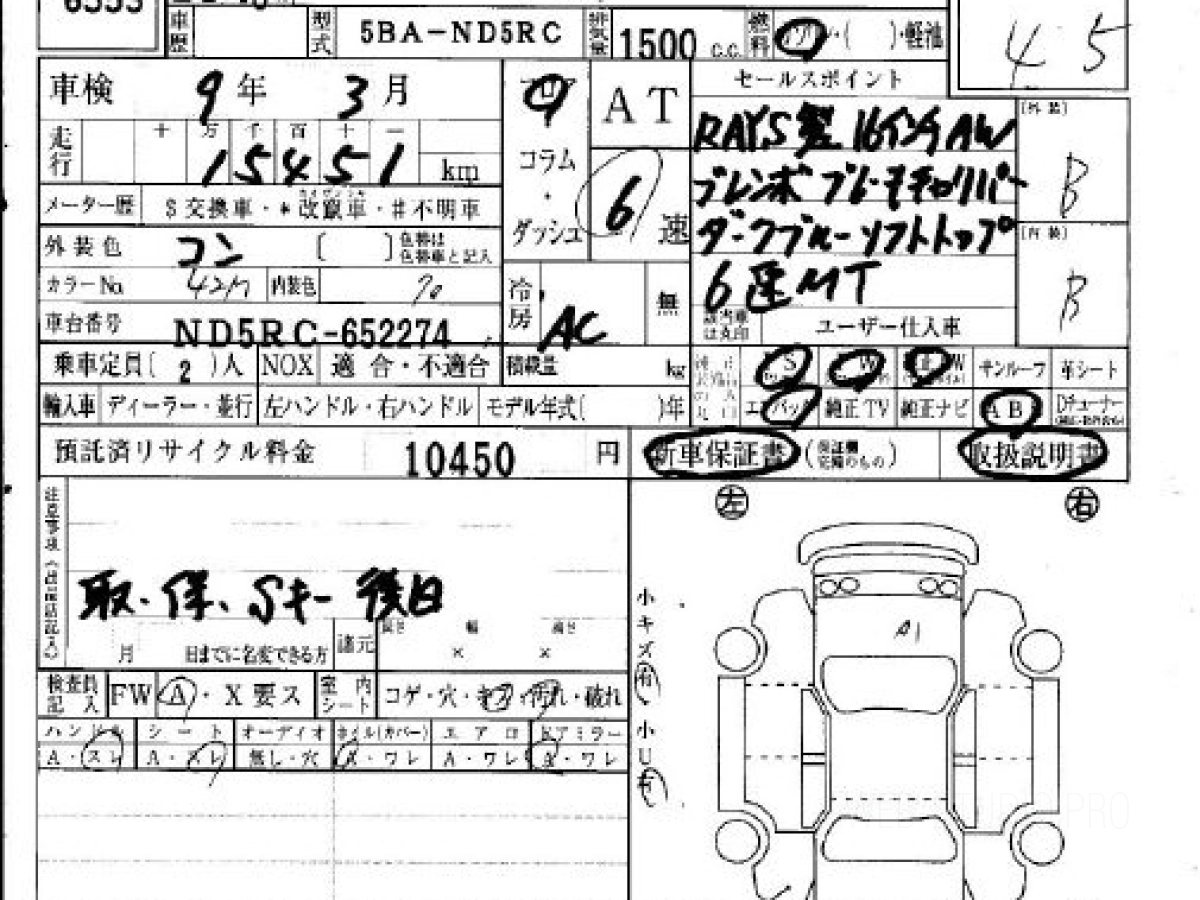 車歴 型式 5BA-ND5RC 排気量 1500 c.c. 燃料 ・( )・軽油
4 5
車検 9年 3月 フロア AT セールスポイント
走行 十 万 千 百 十 一
15451 km
コラム・ダッシュ 6速
RAYS製 16インチAW
ブレンボ ブレーキキャリパー
ダークブルーソフトトップ
6速MT
[外装] B
[内装] B
メーター歴 $交換車・*改竄車・#不明車
外装色 コン [ ] 色替は色替車と記入
カラーNo. 42M 内装色
冷房 AC 無
車台番号 ND5RC-652274
該当車は丸印 ユーザー仕入車
乗車定員( 2 )人 NOX 適合・不適合 積載量 kg
サンルーフ 革シート
輸入車 ディーラー・並行 左ハンドル・右ハンドル モデル年式( )年
エアバッグ 純正TV 純正ナビ ABS
預託済リサイクル料金 10450 円 新車保証書 (保証欄完備のもの) 取扱説明書
左 右
注意事項
取・保、Sキー後日
月 日までに名変できる方 諸元 長さ 幅 高さ
× ×
小キズ有
小U有
A1
検査員記入 FW A・X要ス 室内シート コゲ・穴・キズ・汚れ・破れ
ハンドル シート オーディオ ホイル(カバー) エアロ ドアミラー
A・スレ A・スレ 無し・穴 A・ワレ A・ワレ A・ワレ